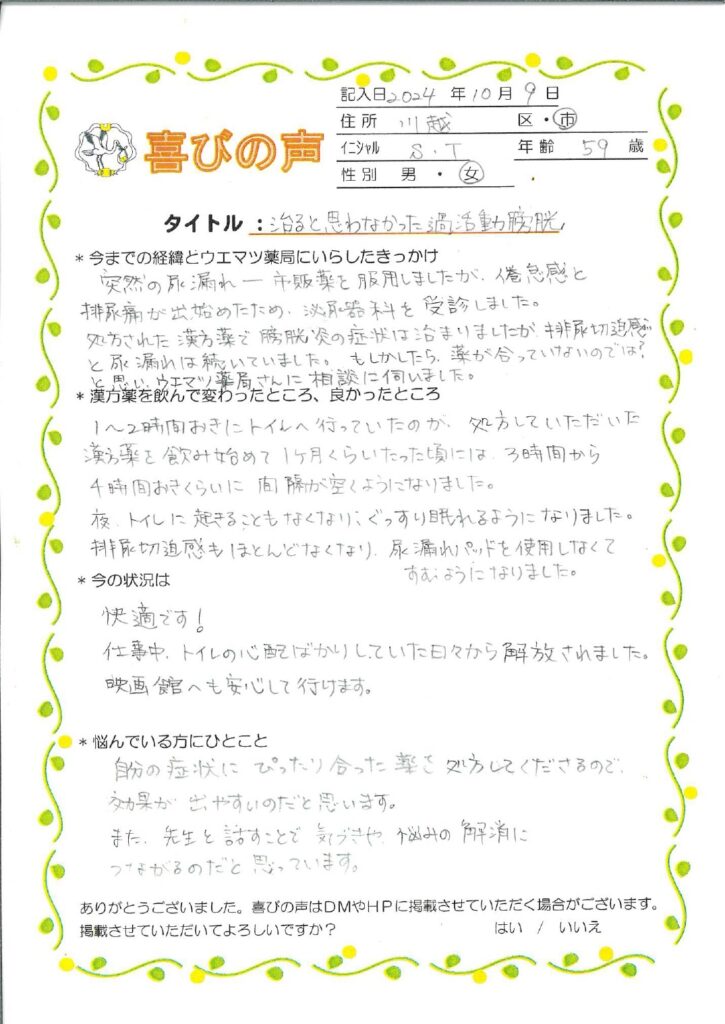 記入日2024 年 10 月 9 日
住所 川越 区・市
喜びの声
イニシャル S・T 年齢 59 歳
性別 男・女
タイトル：治ると思わなかった過活動膀胱
*今までの経緯とウエマツ薬局にいらしたきっかけ
突然の尿漏れー市販薬を服用しましたが、倦怠感と
排尿痛が出始めたため、泌尿器科を受診しました。
処方された漢方薬で膀胱炎の症状は治まりましたが、排尿切迫感
と尿漏れは続いていました。もしかしたら、薬が合っていないのでは?
と思い、ウエマツ薬局さんに相談に伺いました。
*漢方薬を飲んで変わったところ、良かったところ
1〜2時間おきにトイレへ行っていたのが、処方していただいた
漢方薬を飲み始めて1ヶ月くらいたった頃には、3時間から
4時間おきくらいに間隔が空くようになりました。
夜、トイレに起きることもなくなり、ぐっすり眠れるようになりました。
排尿切迫感もほとんどなくなり、尿漏れパッドを使用しなくて
すむようになりました。
*今の状況は
快適です!
仕事中、トイレの心配ばかりしていた日々から解放されました。
映画館へも安心して行けます。
*悩んでいる方にひとこと
自分の症状にぴったり合った薬を処方してくださるので、
効果が出やすいのだと思います。
また、先生と話すことで気づきや、悩みの解消に
つながるのだと思っています。
ありがとうございました。喜びの声はDMやHPに掲載させていただく場合がございます。
掲載させていただいてよろしいですか？ はい / いいえ